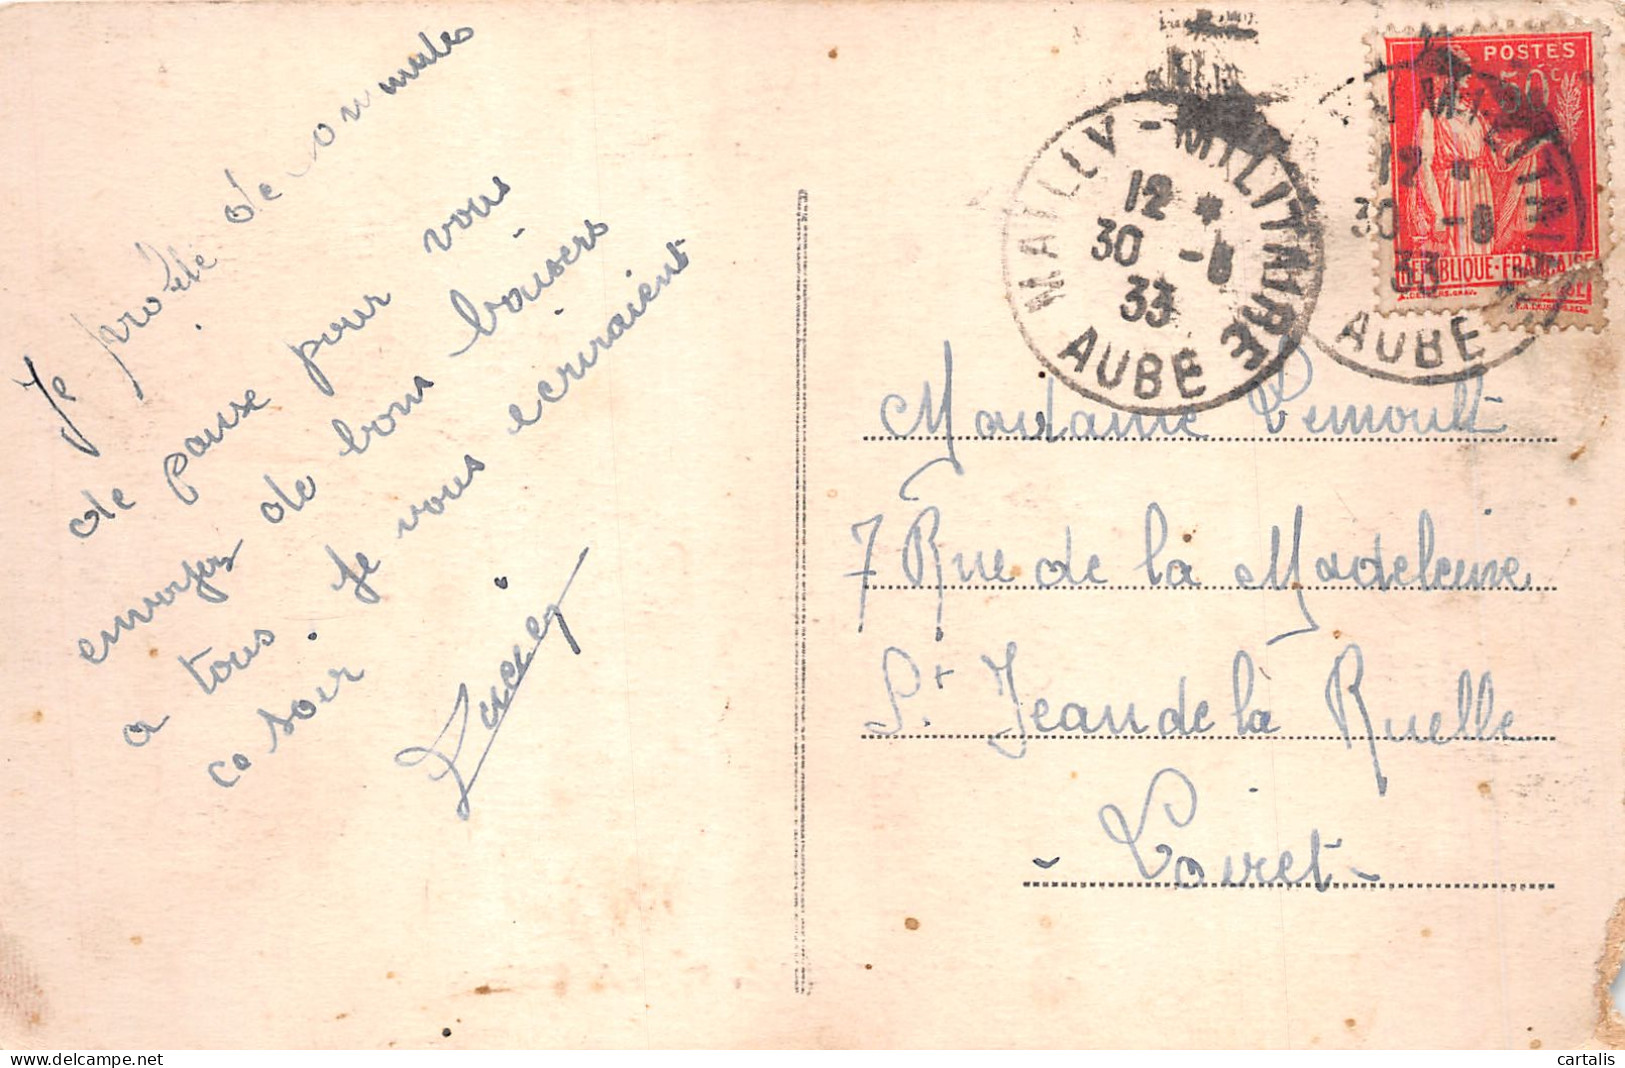 Je profite de
de pause pour vous
envoyer de bons baisers
a tous. Je vous écriraient
ce soir
POSTES
50c
REPUBLIQUE-FRANÇAISE
MAILLY-MILITAIRE
12 *
30 -8
33
AUBE
12 *
30 -8
33
AUBE
Madame
7 Rue de la Madeleine
St Jean de la Ruelle
- Loiret -
cartalis